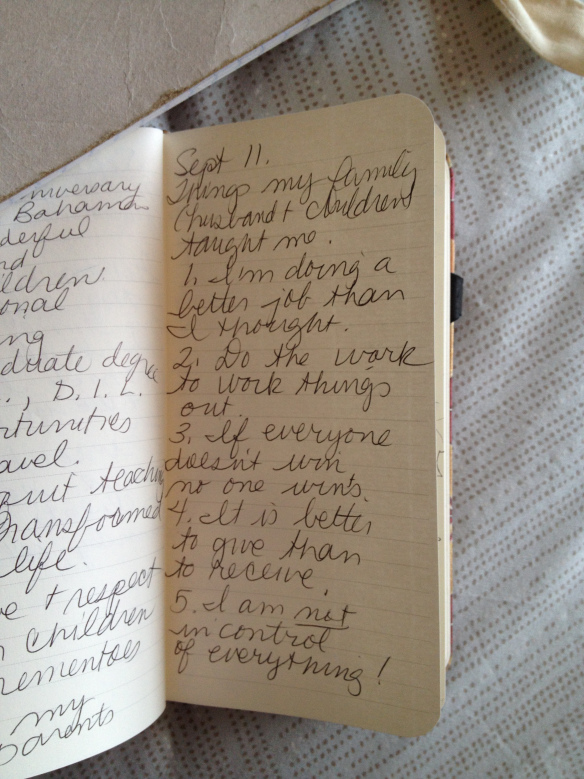 niversary
Bahamas
derful
nd
ildren
onal
ng
duate degree
., D.I.L.
rtunities
avel.
quit teaching
transformed
life.
ve + respect
n children
rementoes
my
parents
Sept 11.
Things my family
(husband + children)
taught me.
1. I'm doing a
better job than
I thought.
2. Do the work
to work things
out.
3. If everyone
doesn't win
no one wins.
4. It is better
to give than
to receive.
5. I am not
in control
of everything!